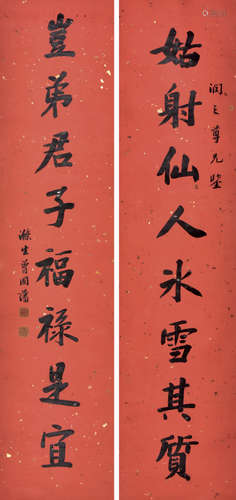 姑射仙人氷雪其質
潤之尊兄鑒
豈弟君子福祿是宜
滌生曾國藩